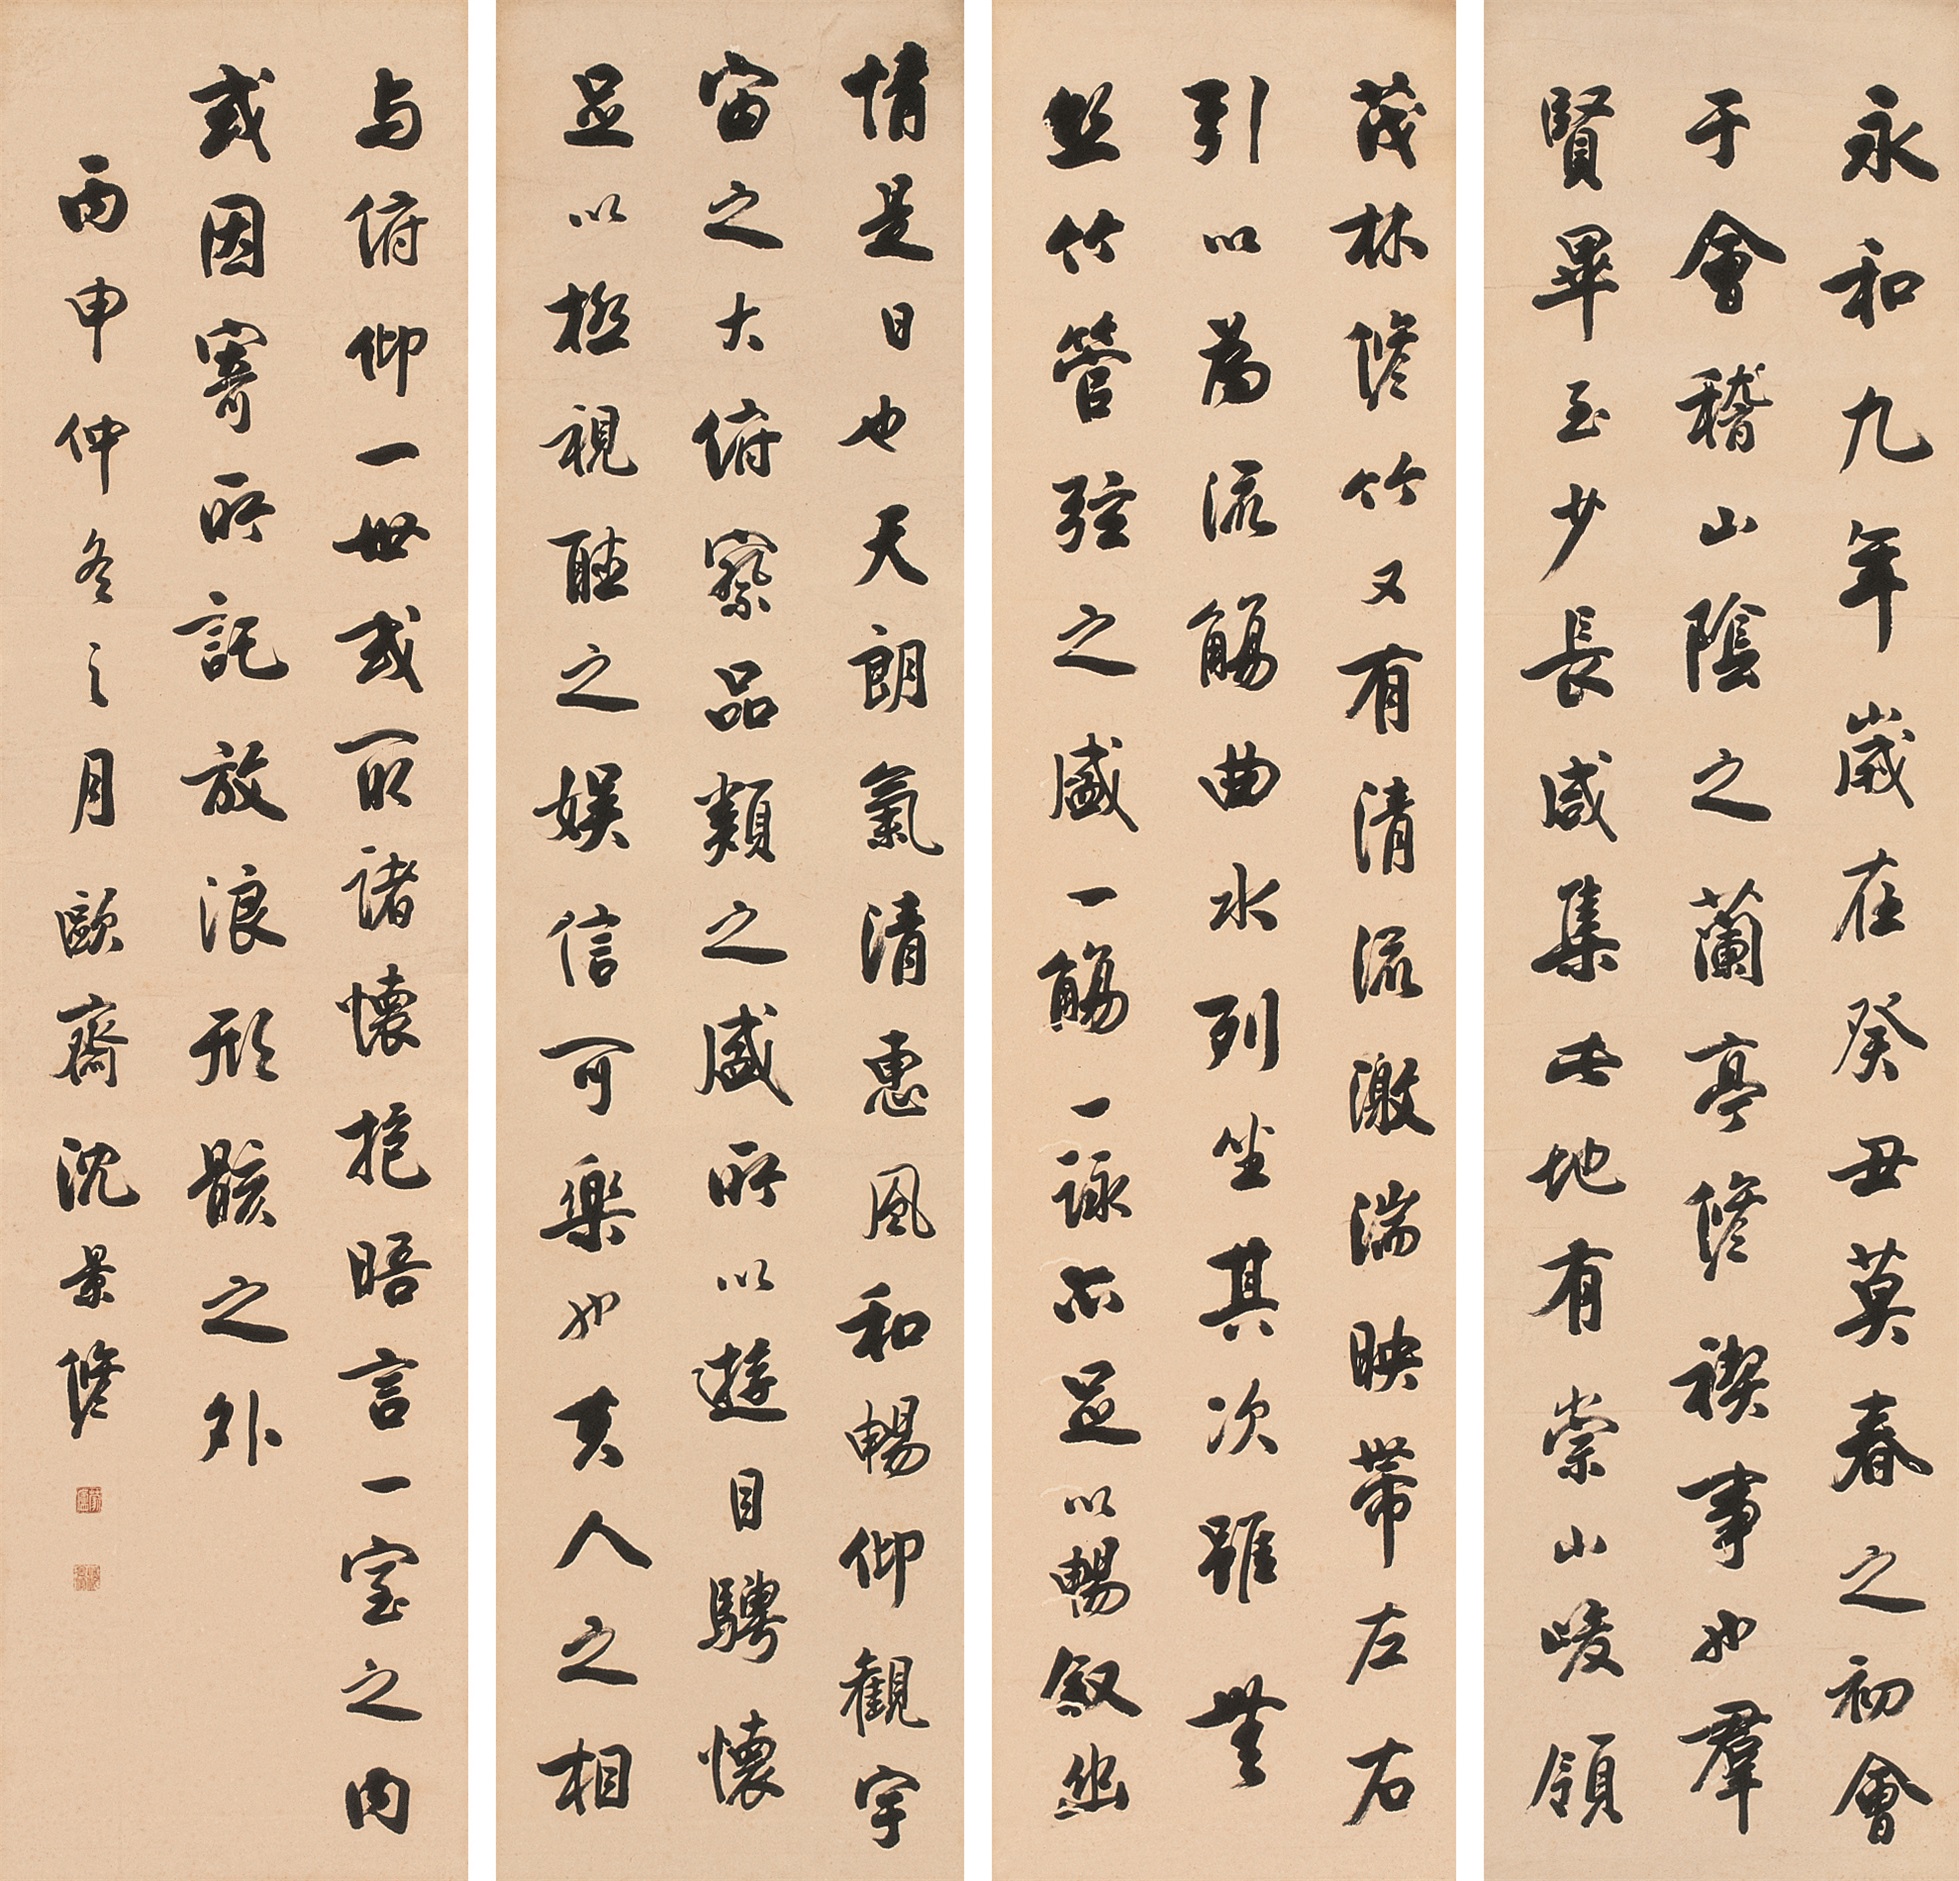 永和九年歲在癸丑莫春之初會
于會稽山陰之蘭亭修禊事也羣
賢畢至少長咸集此地有崇山峻領
茂林修竹又有清流激湍映帶左右
引以為流觴曲水列坐其次雖無
絲竹管弦之盛一觴一詠亦足以暢敘幽
情是日也天朗氣清惠風和暢仰觀宇
宙之大俯察品類之盛所以遊目騁懷
足以極視聽之娛信可樂也夫人之相
与俯仰一世或取諸懷抱晤言一室之內
或因寄所託放浪形骸之外
丙申仲冬之月歐齋沈景修